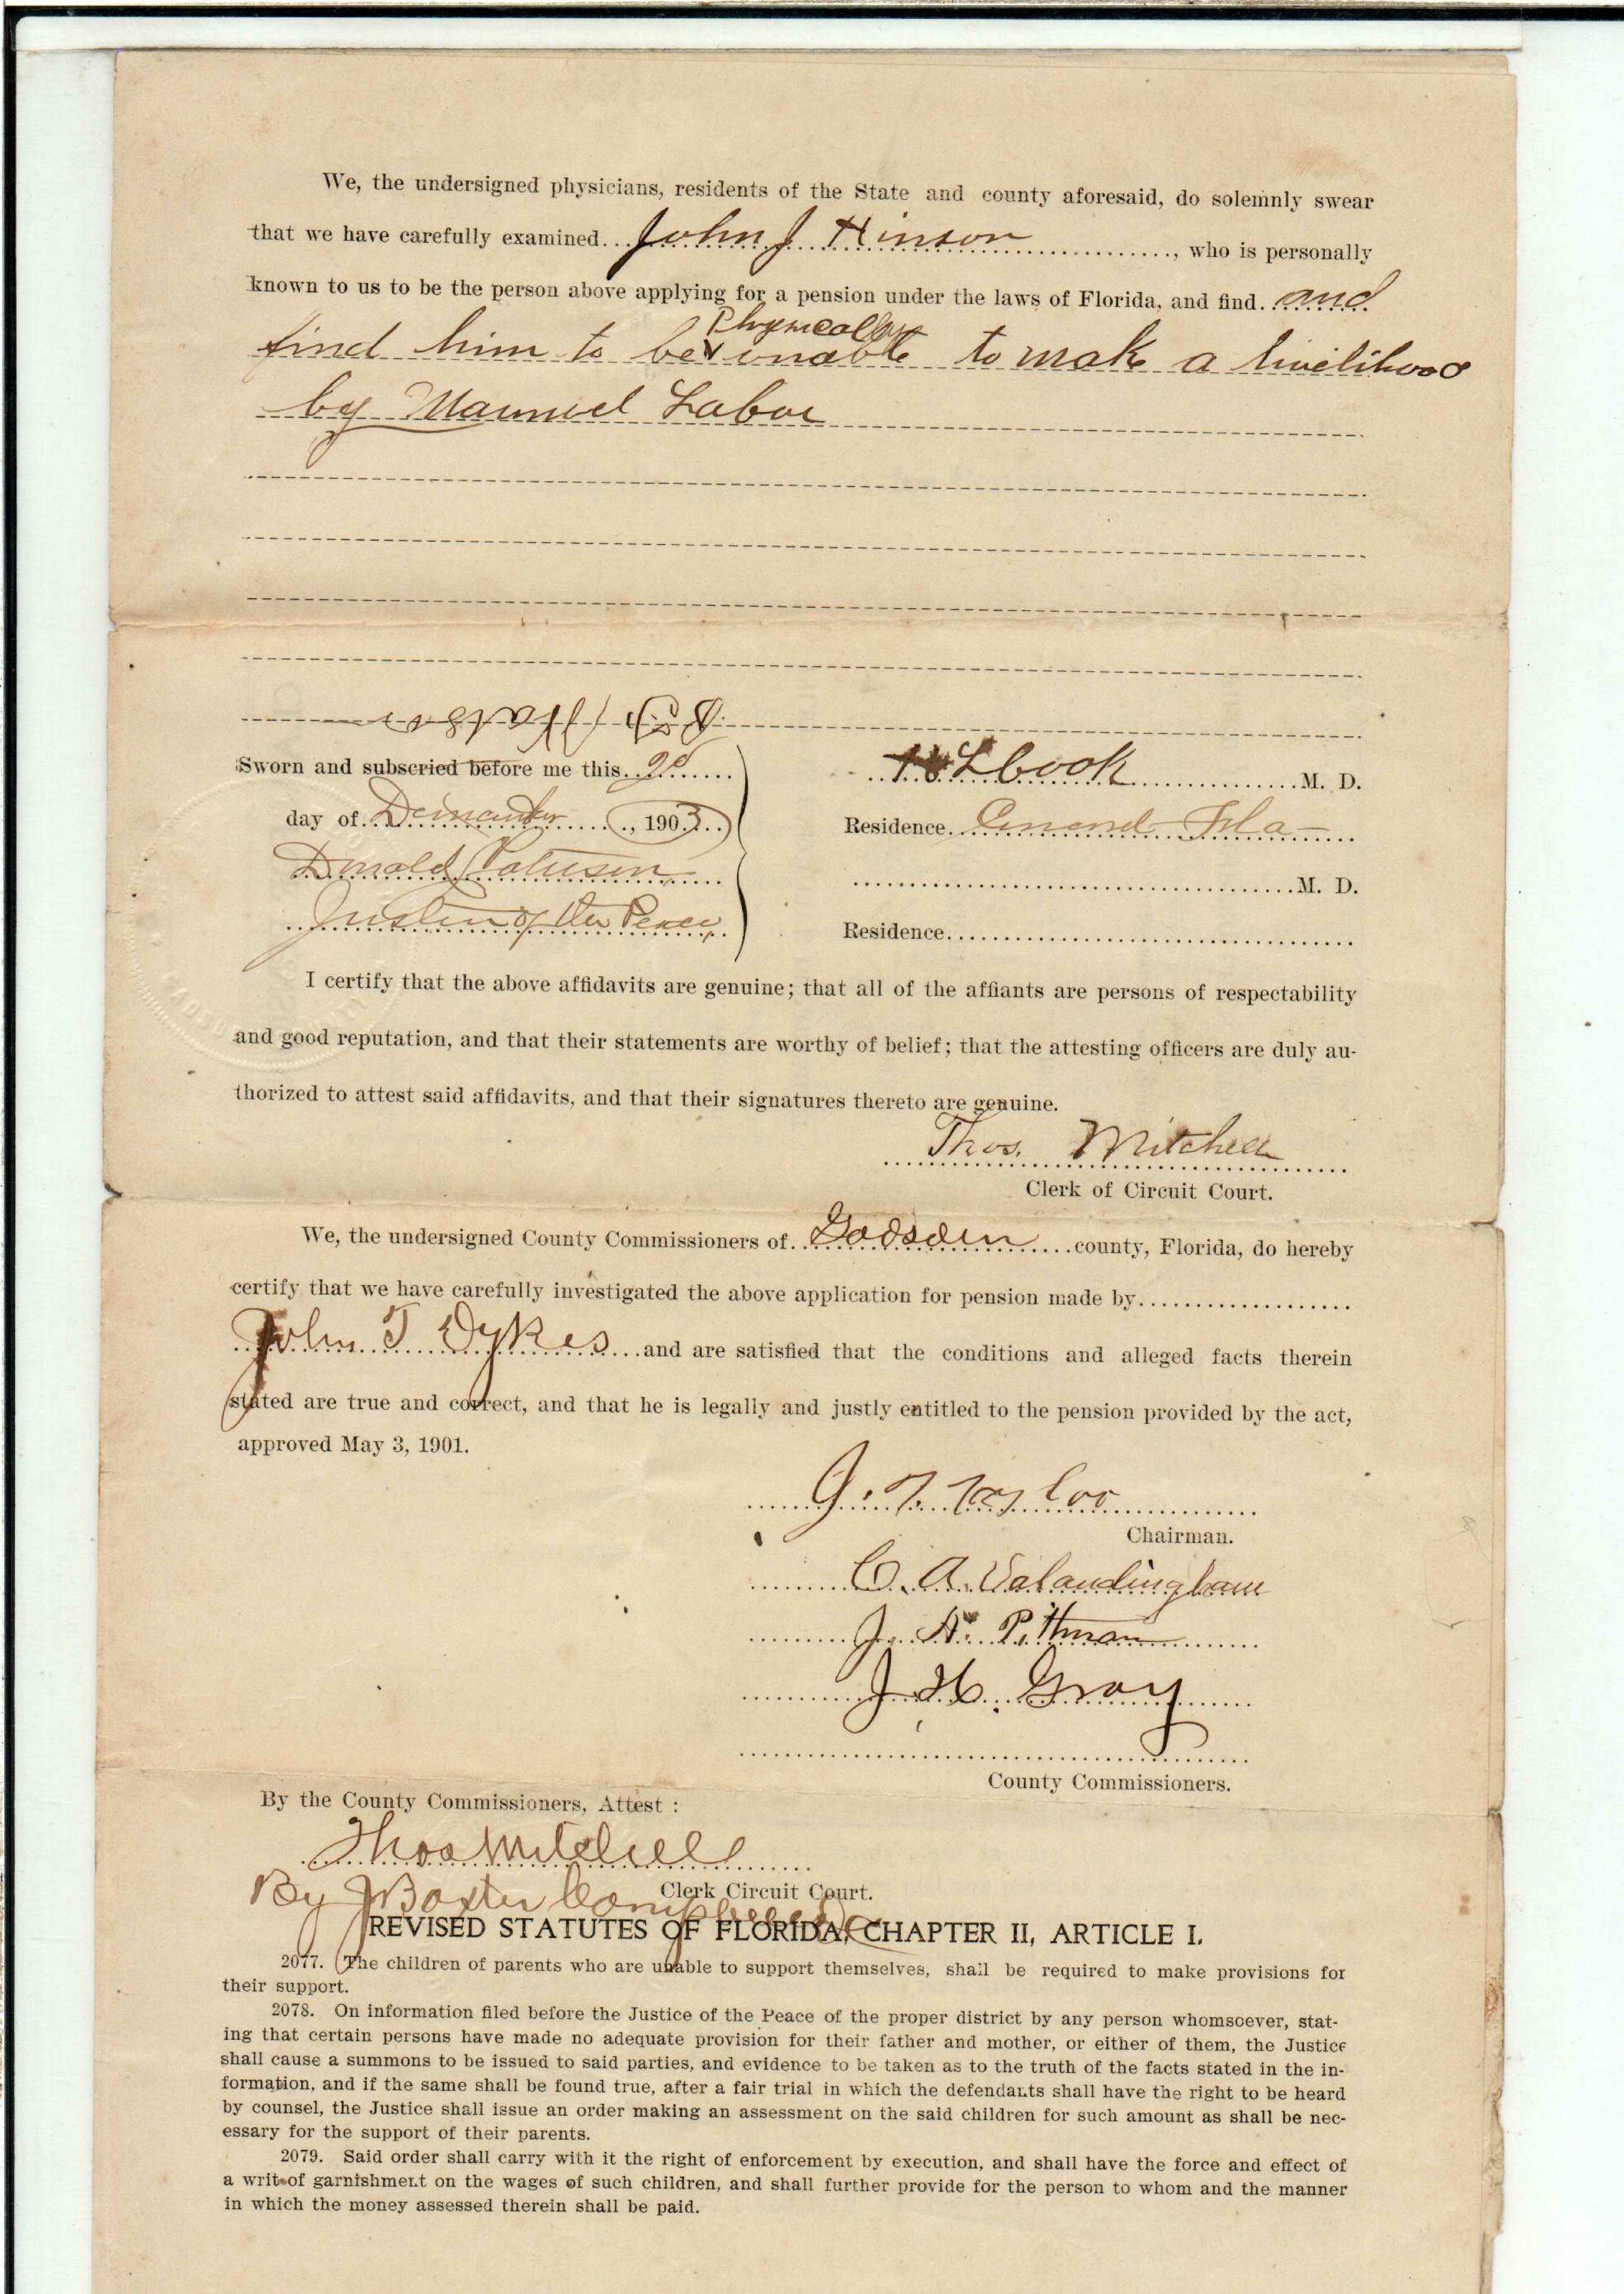 We, the undersigned physicians, residents of the State and county aforesaid, do solemnly swear
that we have carefully examined John J Hinson, who is personally
known to us to be the person above applying for a pension under the laws of Florida, and find and
Physically
find him to be unable to make a livelihood
by Manuel Labor
Sworn and subscried before me this
M. D.
day of , 1903
Residence Fla
Donald
M. D.
Justice of the Peace
Residence
I certify that the above affidavits are genuine; that all of the affiants are persons of respectability
and good reputation, and that their statements are worthy of belief; that the attesting officers are duly au-
thorized to attest said affidavits, and that their signatures thereto are genuine.
Thos. Mitchell
Clerk of Circuit Court.
We, the undersigned County Commissioners of Gadsden county, Florida, do hereby
certify that we have carefully investigated the above application for pension made by
John T Dykes and are satisfied that the conditions and alleged facts therein
stated are true and correct, and that he is legally and justly entitled to the pension provided by the act,
approved May 3, 1901.
Chairman.
C. A. Valandingham
J. A. Pittman
J. H. Gray
County Commissioners.
By the County Commissioners, Attest :
Thos Mitchell
Clerk Circuit Court.
By J Baxter Campbell DC
REVISED STATUTES OF FLORIDA, CHAPTER II, ARTICLE I.
2077. The children of parents who are unable to support themselves, shall be required to make provisions for
their support.
2078. On information filed before the Justice of the Peace of the proper district by any person whomsoever, stat-
ing that certain persons have made no adequate provision for their father and mother, or either of them, the Justice
shall cause a summons to be issued to said parties, and evidence to be taken as to the truth of the facts stated in the in-
formation, and if the same shall be found true, after a fair trial in which the defendants shall have the right to be heard
by counsel, the Justice shall issue an order making an assessment on the said children for such amount as shall be nec-
essary for the support of their parents.
2079. Said order shall carry with it the right of enforcement by execution, and shall have the force and effect of
a writ of garnishment on the wages of such children, and shall further provide for the person to whom and the manner
in which the money assessed therein shall be paid.